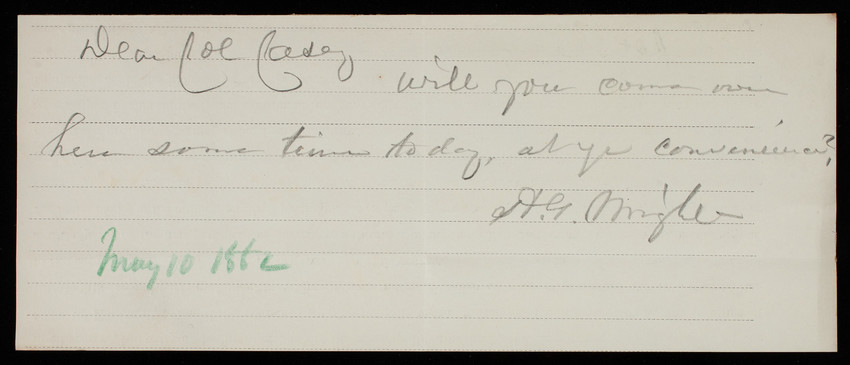 Dear Col Casey
will you come over
here some time to day, at yr convenience?
H.G. Wright
May 10 1882